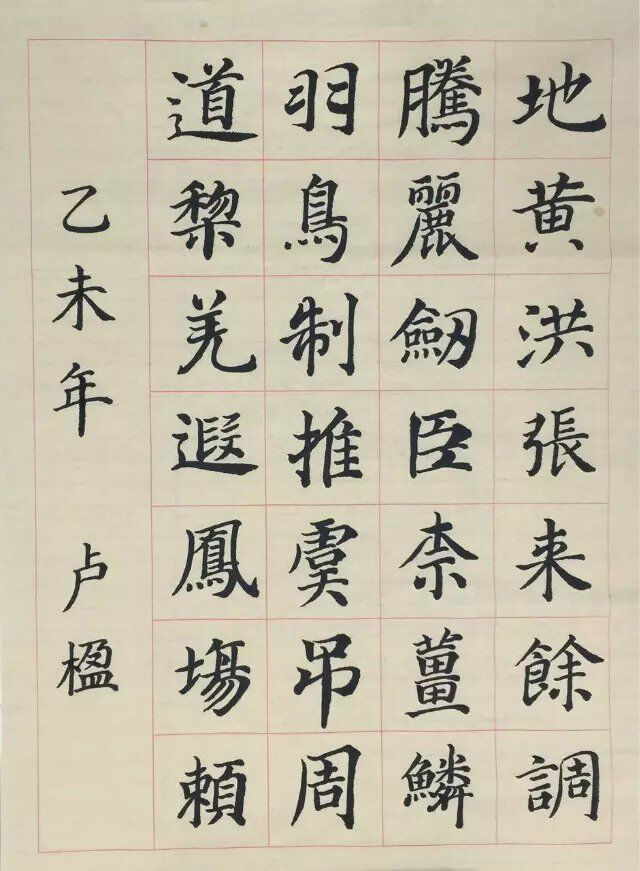 地黄洪張来餘調
騰麗劒臣柰薑鱗
羽鳥制推虞吊周
道棃羌遐鳳塲賴
乙未年 卢楹